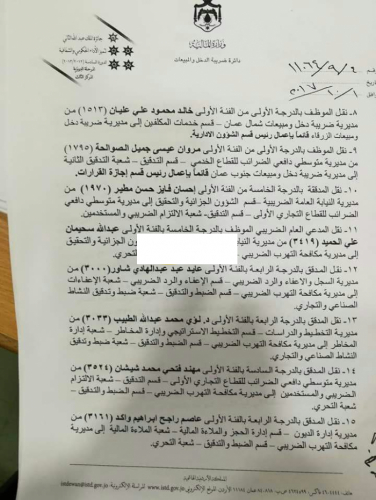 جائزة الملك عبدالله الثاني
لتميز الأداء الحكومي والشفافية
المرحلة البرونزية
المركز الثالث
وزارة المالية
دائرة ضريبة الدخل والمبيعات
١١٠٦٩/٩/٤
٢٠١٧/١٠/١
٨- نقل الموظف بالدرجة الأولى من الفئة الأولى خالد محمود علي عليان (١٥١٣) من
مديرية ضريبة دخل ومبيعات شمال عمان – قسم خدمات المكلفين إلى مديرية ضريبة دخل
ومبيعات الزرقاء قائماً بإعمال رئيس قسم الشؤون الادارية.
٩- نقل الموظف بالدرجة الأولى من الفئة الأولى مروان عيسى جميل الصوالحة (١٧٩٥)
من مديرية متوسطي دافعي الضرائب للقطاع الخدمي – قسم التدقيق – شعبة التدقيق الثانية
إلى مديرية ضريبة دخل ومبيعات جنوب عمان قائماً بإعمال رئيس قسم إجازة القرارات.
١٠- نقل المدققة بالدرجة الخامسة من الفئة الأولى إحسان فايز حسن مطير (١٩٧٠) من
مديرية النيابة العامة الضريبية – قسم الشؤون الجزائية والتحقيق إلى مديرية متوسطي دافعي
الضرائب للقطاع التجاري الأولى – قسم التدقيق- شعبة الالتزام الضريبي والمستخدمين.
١١- نقل المدعي العام الضريبي الموظف بالدرجة الخامسة بالفئة الأولى عبدالله سحيمان
علي الحميد (٣٤١٩) من مديرية النيابة الجزائية والتحقيق إلى
مديرية مكافحة التهرب الضريبي –
١٢- نقل المدقق بالدرجة الرابعة بالفئة الأولى عايد عبد عبدالهادي شاور (٣٠٠٠) من
مديرية السجل والاعفاء والرد الضريبي – قسم الإعفاء والرد الضريبي – شعبة الإعفاءات
إلى مديرية مكافحة التهرب الضريبي – قسم الضبط والتدقيق – شعبة ضبط وتدقيق النشاط
الصناعي والتجاري.
١٣- نقل المدقق بالدرجة الرابعة بالفئة الأولى د. لؤي محمد عبدالله الطبيب (٣٠٣٣) من
مديرية التخطيط والدراسات – قسم التخطيط الاستراتيجي وإدارة المخاطر – شعبة إدارة
المخاطر إلى مديرية مكافحة التهرب الضريبي – قسم الضبط والتدقيق – شعبة تدقيق
النشاط الصناعي والتجاري.
١٤- نقل المدقق بالدرجة السادسة بالفئة الأولى مهند فتحي محمد شيشان (٣٥٢٤) من
مديرية متوسطي دافعي الضرائب للقطاع التجاري الأولى – قسم التدقيق – شعبة الالتزام
الضريبي والمستخدمين إلى مديرية مكافحة التهرب الضريبي – قسم الضبط والتدقيق –
شعبة التحري.
١٥- نقل المدقق بالدرجة الرابعة بالفئة الأولى عاصم راجح ابراهيم واكد (٣١٦١) من
مديرية إدارة الديون – قسم إدارة الحجز والملاءة المالية – شعبة الملاءة المالية إلى مديرية
مكافحة التهرب الضريبي – قسم الضبط والتدقيق – شعبة التحري.
المملكة الأردنية الهاشمية